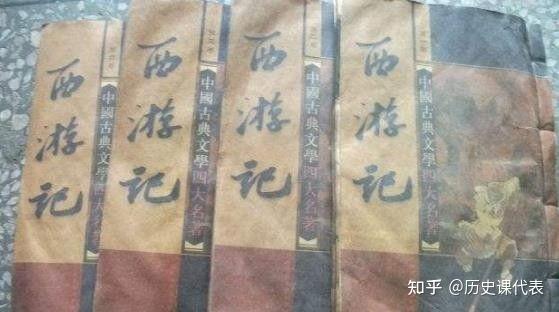 西游记
中國古典文學四大名著
西游记
中國古典文學四大名著
西游记
中國古典文學四大名著
西游记
中國古典文學四大名著
知乎 @历史课代表